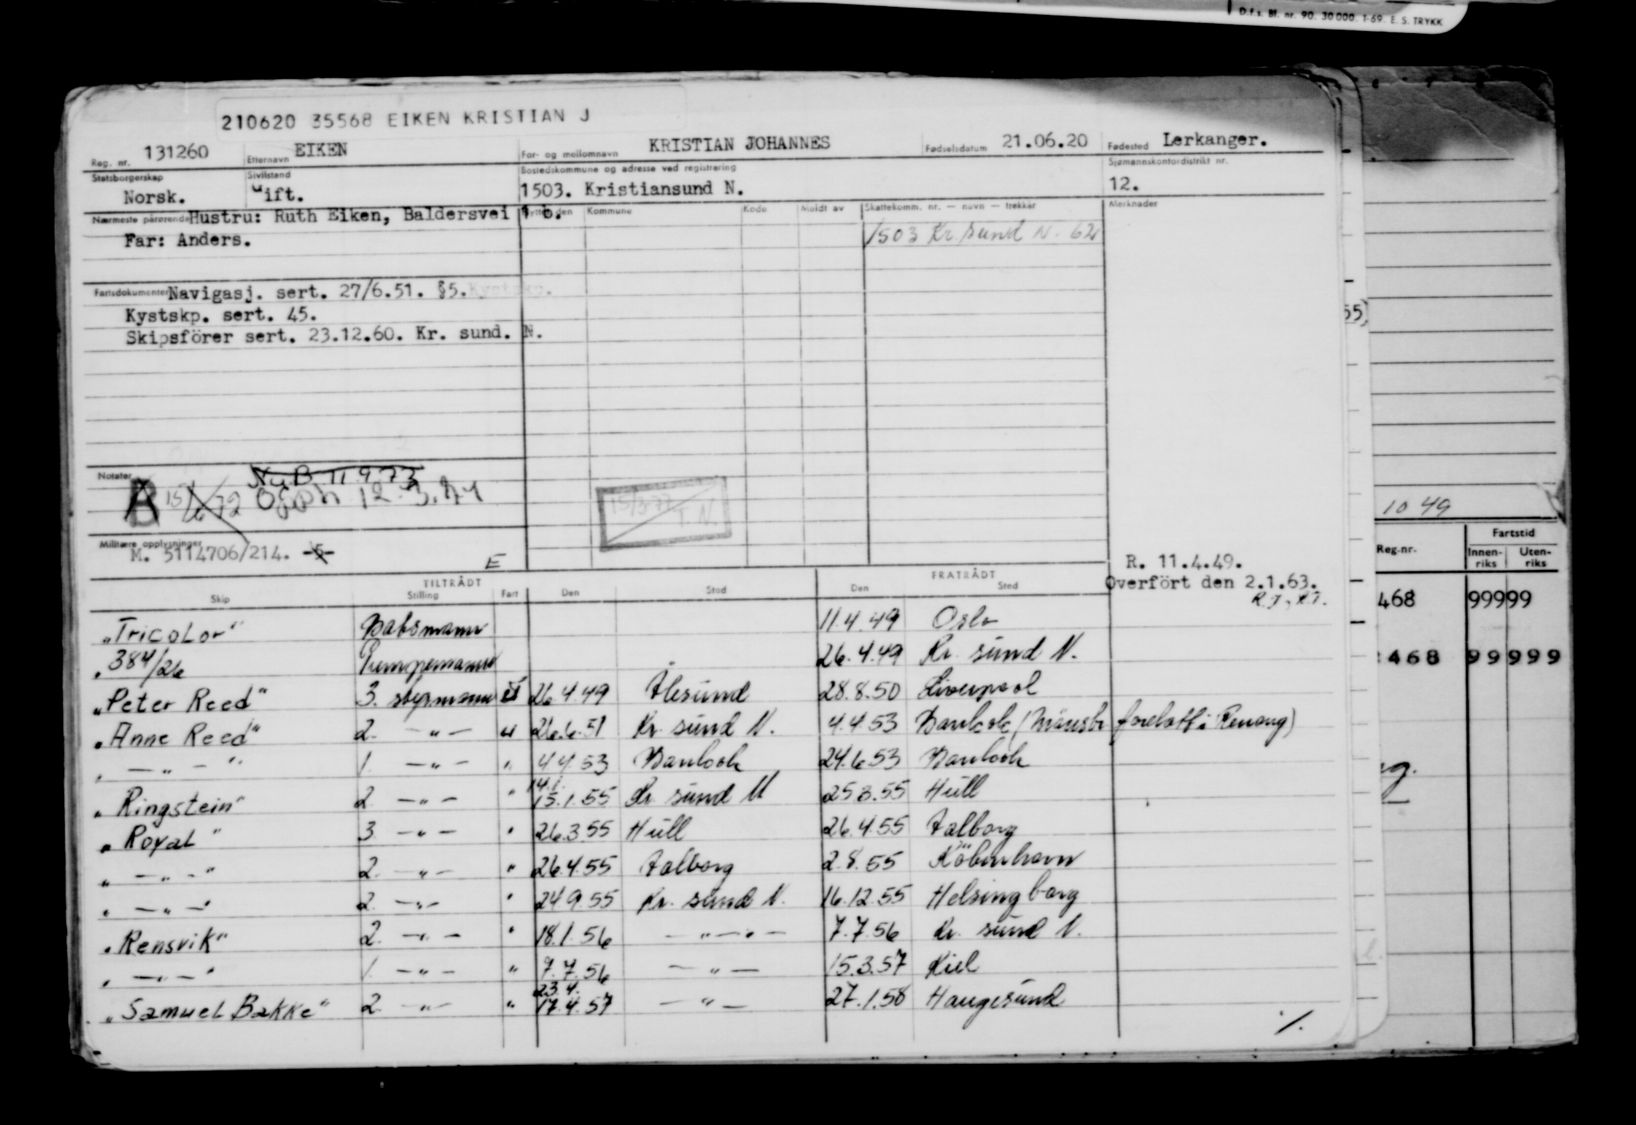 D.f.s. Bl. nr. 90. 30 000. 1-69. E. S. TRYKK
210620 35568 EIKEN KRISTIAN J
Reg. nr. 131260 Etternavn EIKEN For- og mellomnavn KRISTIAN JOHANNES Fødselsdatum 21.06.20 Fødested Lerkanger.
Statsborgerskap Sivilstand Bostedskommune og adresse ved registrering Sjømannskontordistrikt nr.
Norsk. Gift. 1503. Kristiansund N. 12.
Nærmeste pårørende Hustru: Ruth Eiken, Baldersvei 1 b. Flyttet den Kommune Kode Meldt av Skattekomm. nr. — navn — trekkår Merknader
Far: Anders. 1503 Kr. sund N. 62
Fartsdokumenter Navigasj. sert. 27/6.51. §5. Kystskp.
Kystskp. sert. 45.
Skipsförer sert. 23.12.60. Kr. sund. N.
55)
Notater
11 9 73
15/6 72 12.3.74
15/3-77 T. N.
10 49
Militære opplysninger
M. 5114706/214. -5-
E
R. 11.4.49.
Overfört den 2.1.63.
TILTRÅDT FRATRÅDT
Skip Stilling Fart Den Sted Den Sted
Reg.-nr. Fartstid
Innen-riks Uten-riks
468 99999
468 99999
"Tricolor" Baksmann 11.4.49 Oslo
" 384/26 Pumpemann 26.4.49 Kr. sund N.
"Peter Reed" 3. styrmann U 26.4.49 Ålesund 28.8.50 Liverpool
"Anne Reed" 2. — " — " 26.6.51 Kr. sund N. 4.4.53 Bankok
" — " — " 1. — " — " 4.4.53 Bankok 24.6.53 Bankok
"Ringstein" 2 — " — " 14.1. 15.1.55 Kr. sund N 25.3.55 Hull
"Royal" 3 — " — " 26.3.55 Hull 26.4.55 Aalborg
" — " — " 2. — " — " 26.4.55 Aalborg 2.8.55 Köbenhavn
" — " — " 2. — " — " 24.9.55 Kr. sund N. 16.12.55 Helsingborg
"Rensvik" 2. — " — " 18.1.56 — " — " — 7.7.56 Kr. sund N.
" — " — " 1. — " — " 7.7.56 — " — 15.3.57 Kiel
"Samuel Bakke" 2. — " — " 23.4. 17.4.57 — " — 27.1.58 Haugesund
%.